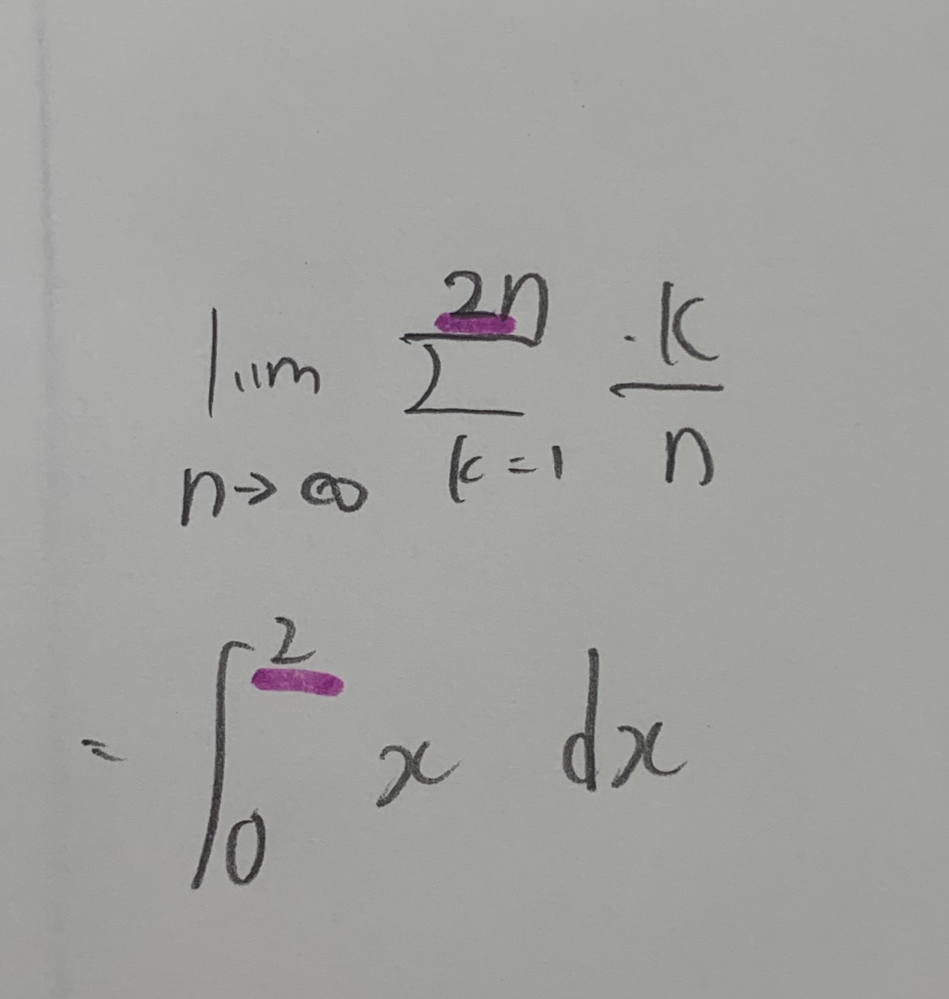 lim Σ_{k=1}^{2n} k/n
n→∞
= ∫_0^2 x dx